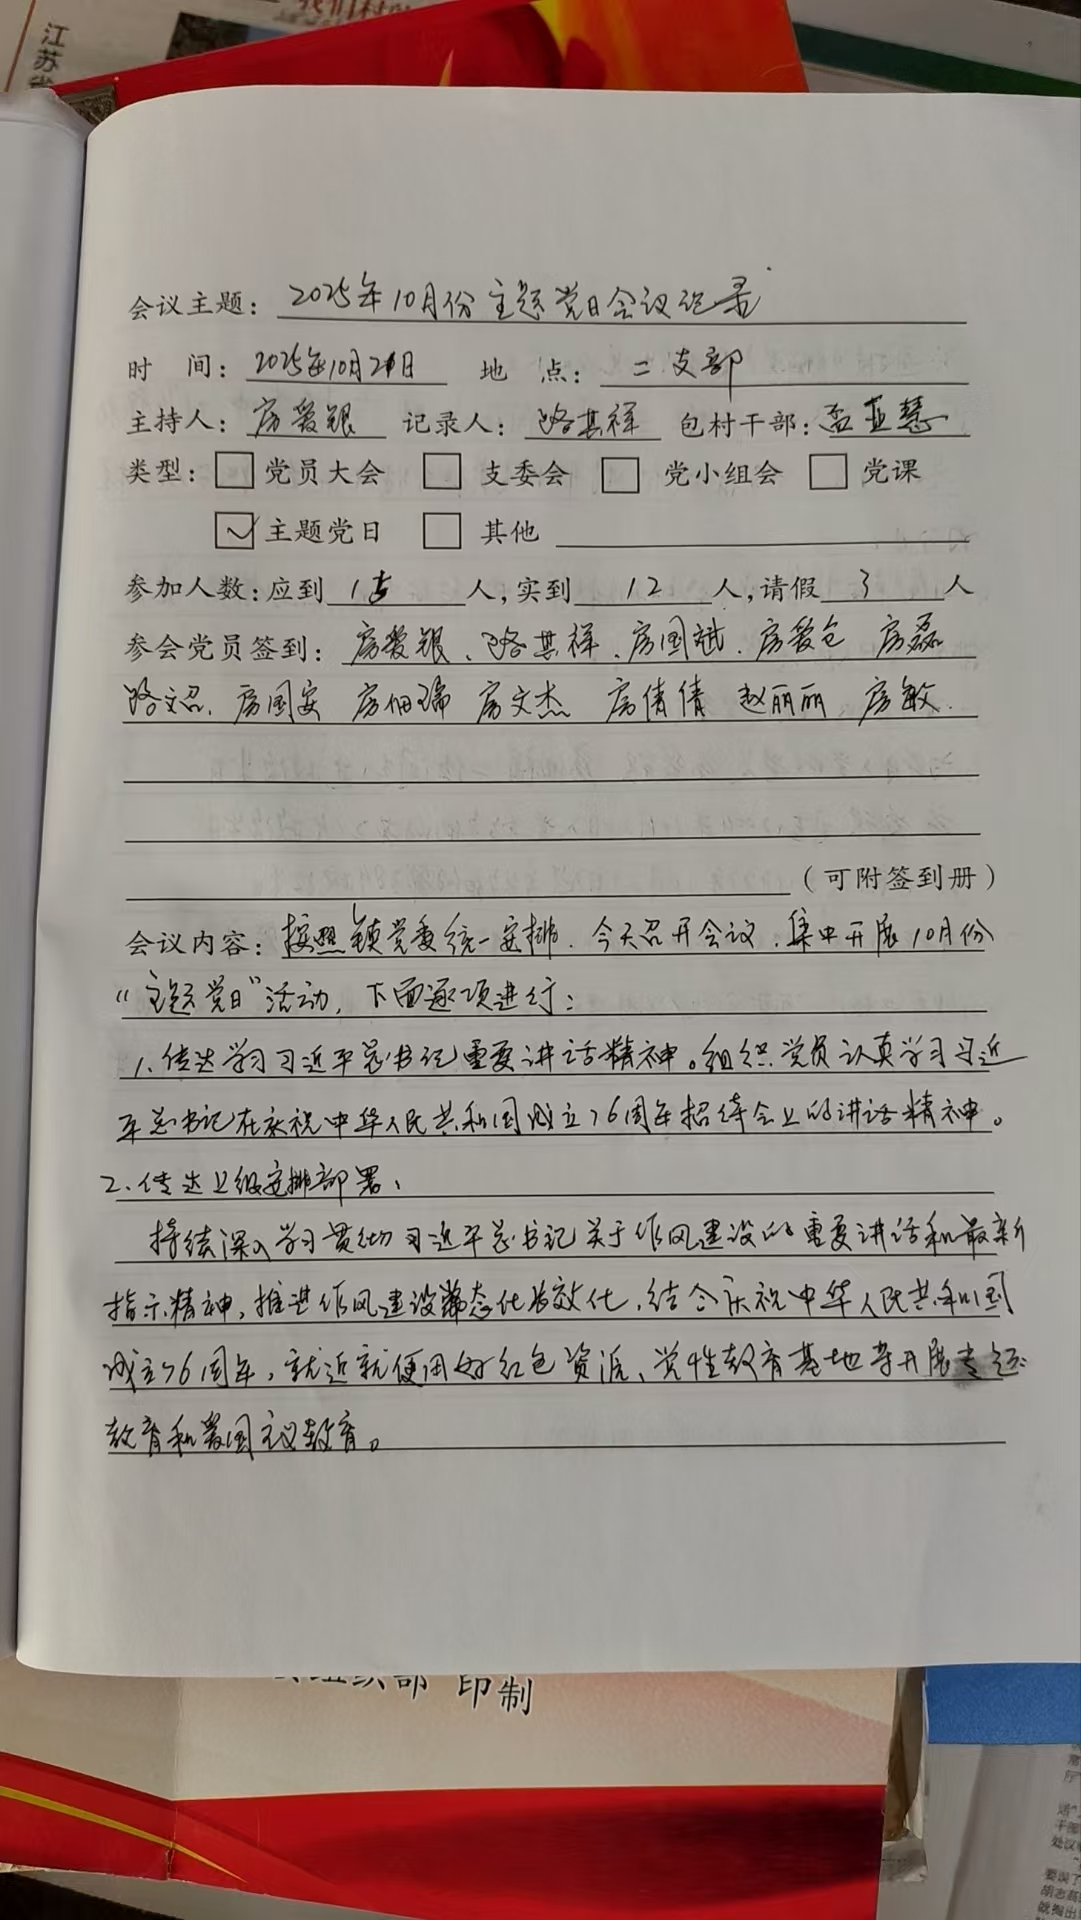 江苏省
会议主题: 2025年10月份主题党日会议记录
时 间: 2025年10月21日 地 点: 二支部
主持人: 房爱银 记录人: 路其祥 包村干部: 孟亚慧
类型: 党员大会 支委会 党小组会 党课
✓ 主题党日 其他
参加人数: 应到 15 人, 实到 12 人, 请假 3 人
参会党员签到: 房爱银、路其祥、房国斌、房爱仓 房磊
路文召、房国安 房佃瑞 房文杰 房倩倩 赵丽丽 房敏
(可附签到册)
会议内容: 按照镇党委统一安排,今天召开会议,集中开展10月份
“主题党日”活动,下面逐项进行:
1、传达学习习近平总书记重要讲话精神。组织党员认真学习习近
平总书记在庆祝中华人民共和国成立76周年招待会上的讲话精神。
2、传达上级安排部署、
持续深入学习贯彻习近平总书记关于作风建设的重要讲话和最新
指示精神,推进作风建设常态化长效化,结合庆祝中华人民共和国
成立76周年,就近就便用好红色资源、党性教育基地等开展专题
教育和爱国主义教育。
组织部 印制